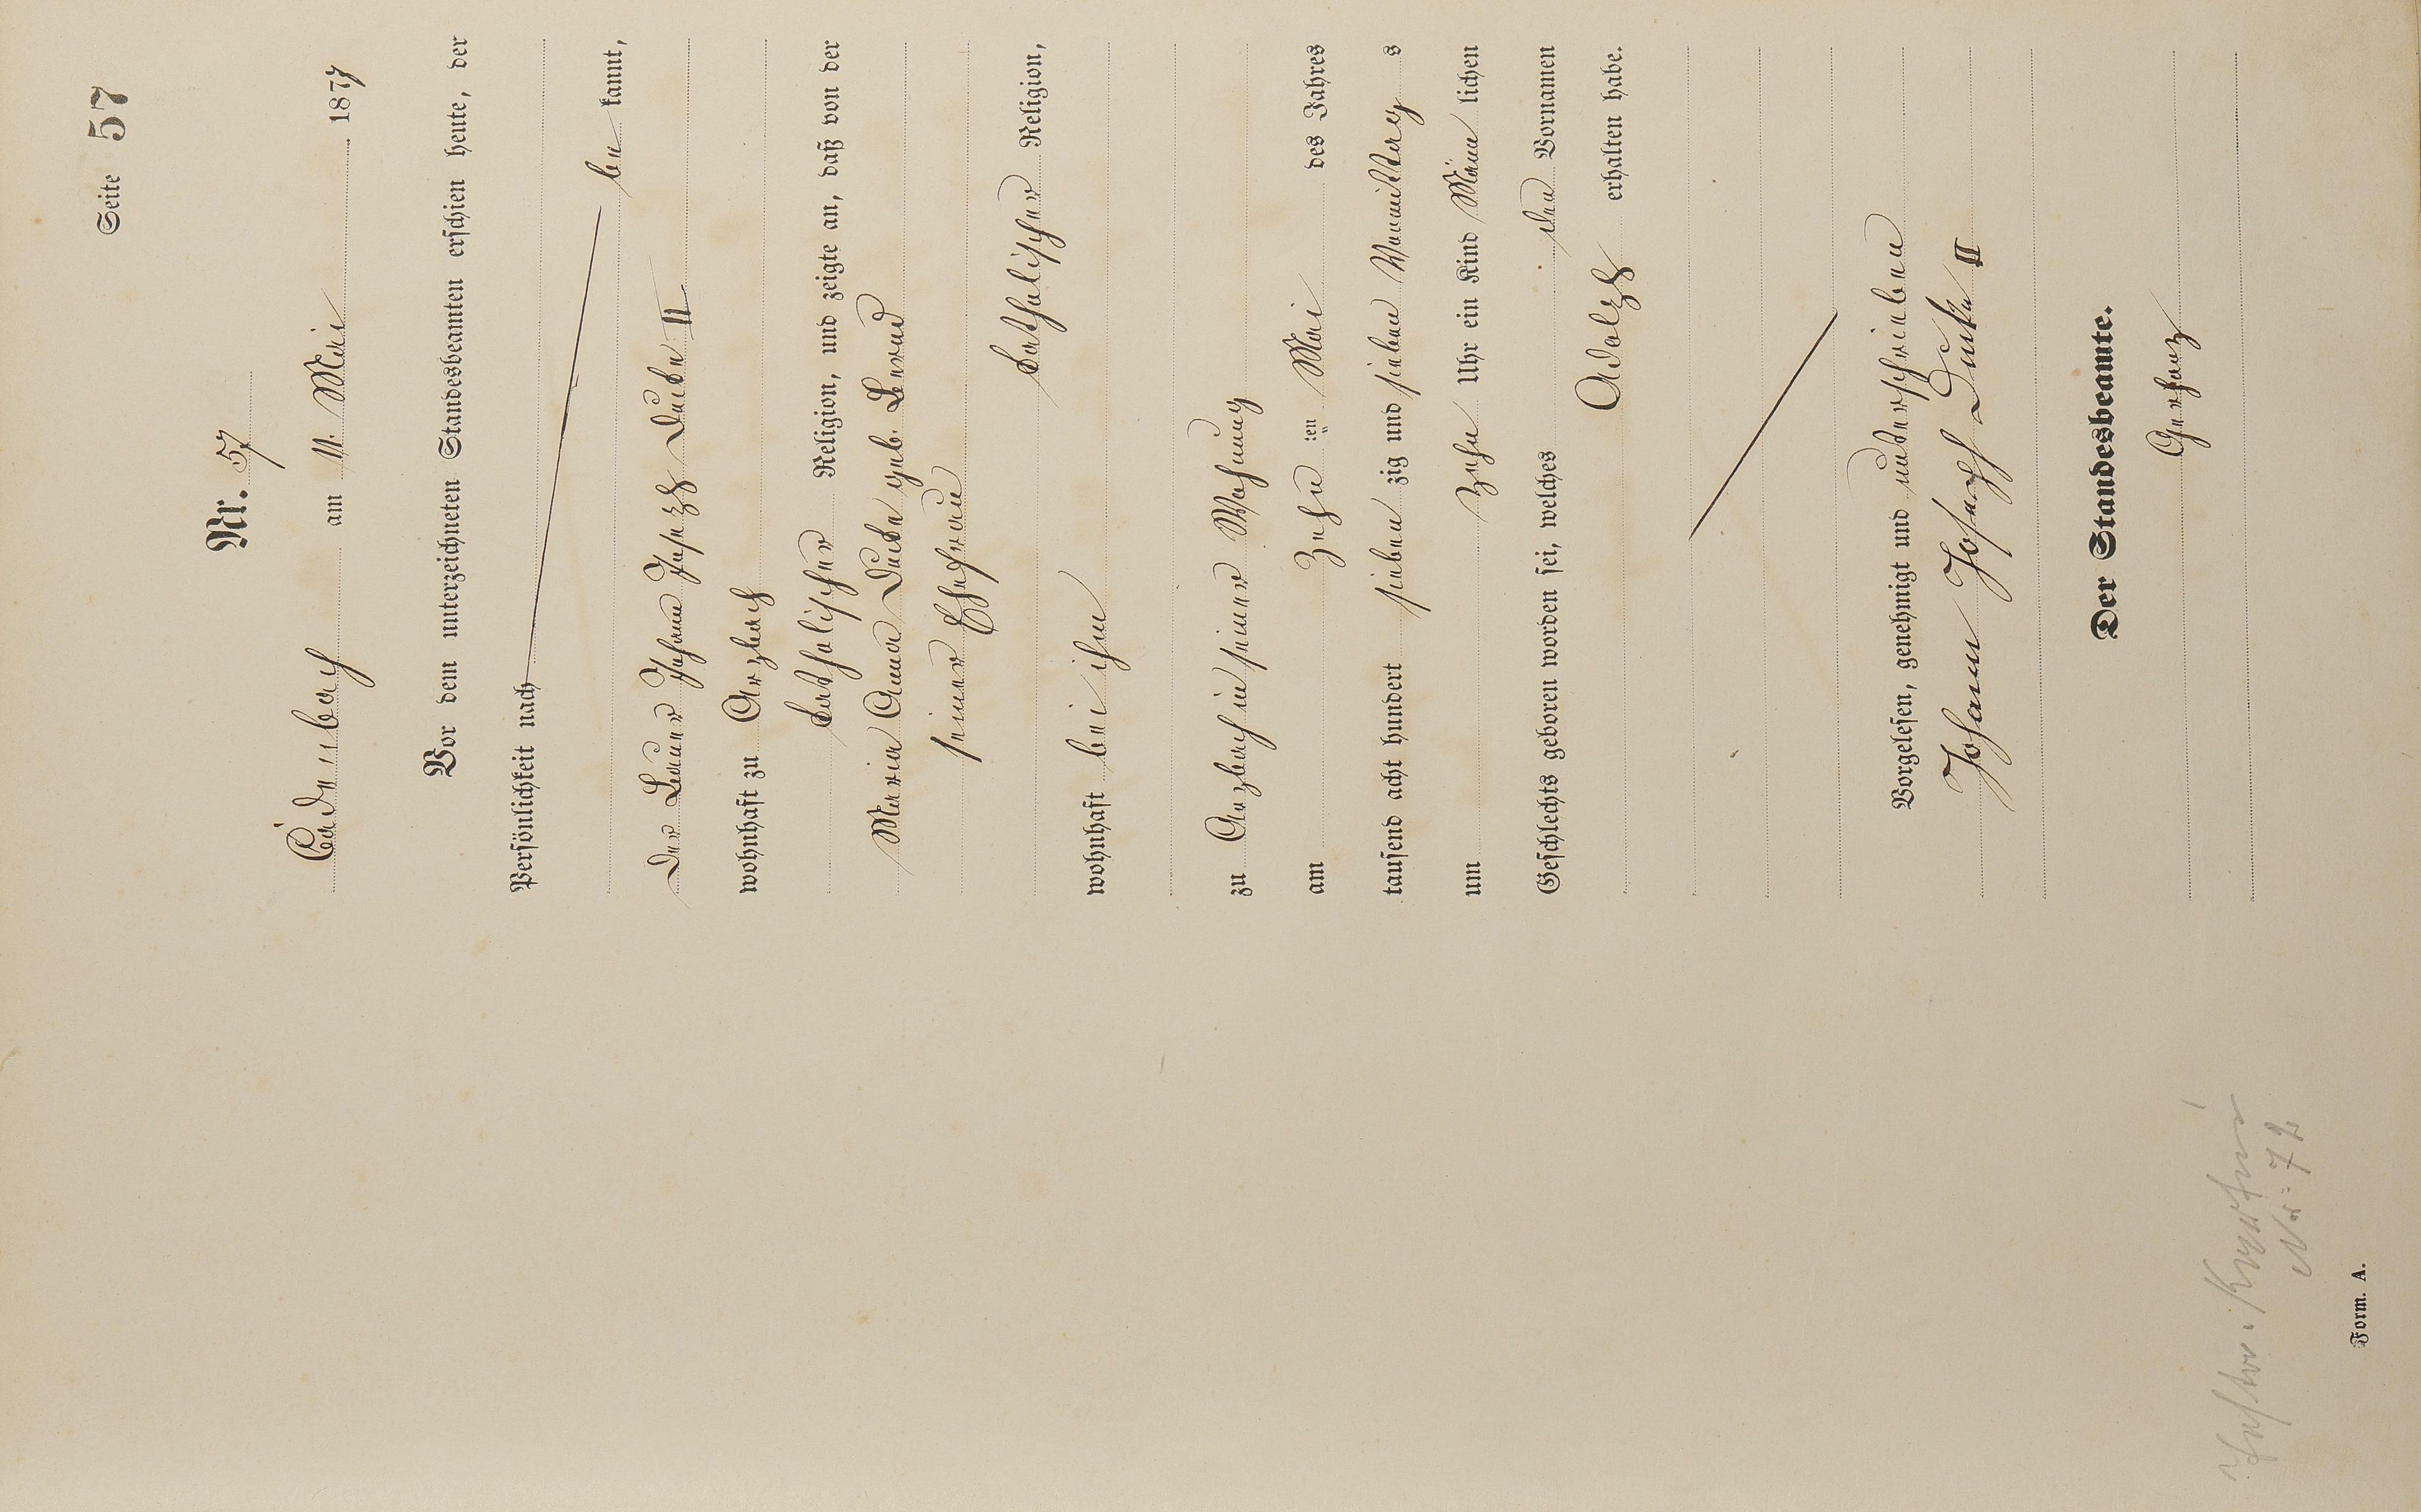 Seite 57
Nr. 57
Cadenbach am 11. Mai 1877
Vor dem unterzeichneten Standesbeamten erschien heute, der
Persönlichkeit nach
be kannt,
der Bauer Johann Joseph Ducke II
wohnhaft zu Arzbach
katholischer Religion, und zeigte an, daß von der
Maria Anna Ducke geb.
seiner Ehefrau
katholischer Religion,
wohnhaft bei ihm
zu Arzbach in seiner Wohnung
am Zehn ten Mai des Jahres
tausend acht hundert sieben zig und sieben Vormittag s
um zehn Uhr ein Kind Männ lichen
Geschlechts geboren worden sei, welches den Vornamen
Adolph erhalten habe.
Vorgelesen, genehmigt und unterschrieben
Johann Joseph Ducke II
Der Standesbeamte.
Gerharz
Nr. 72
Form. A.